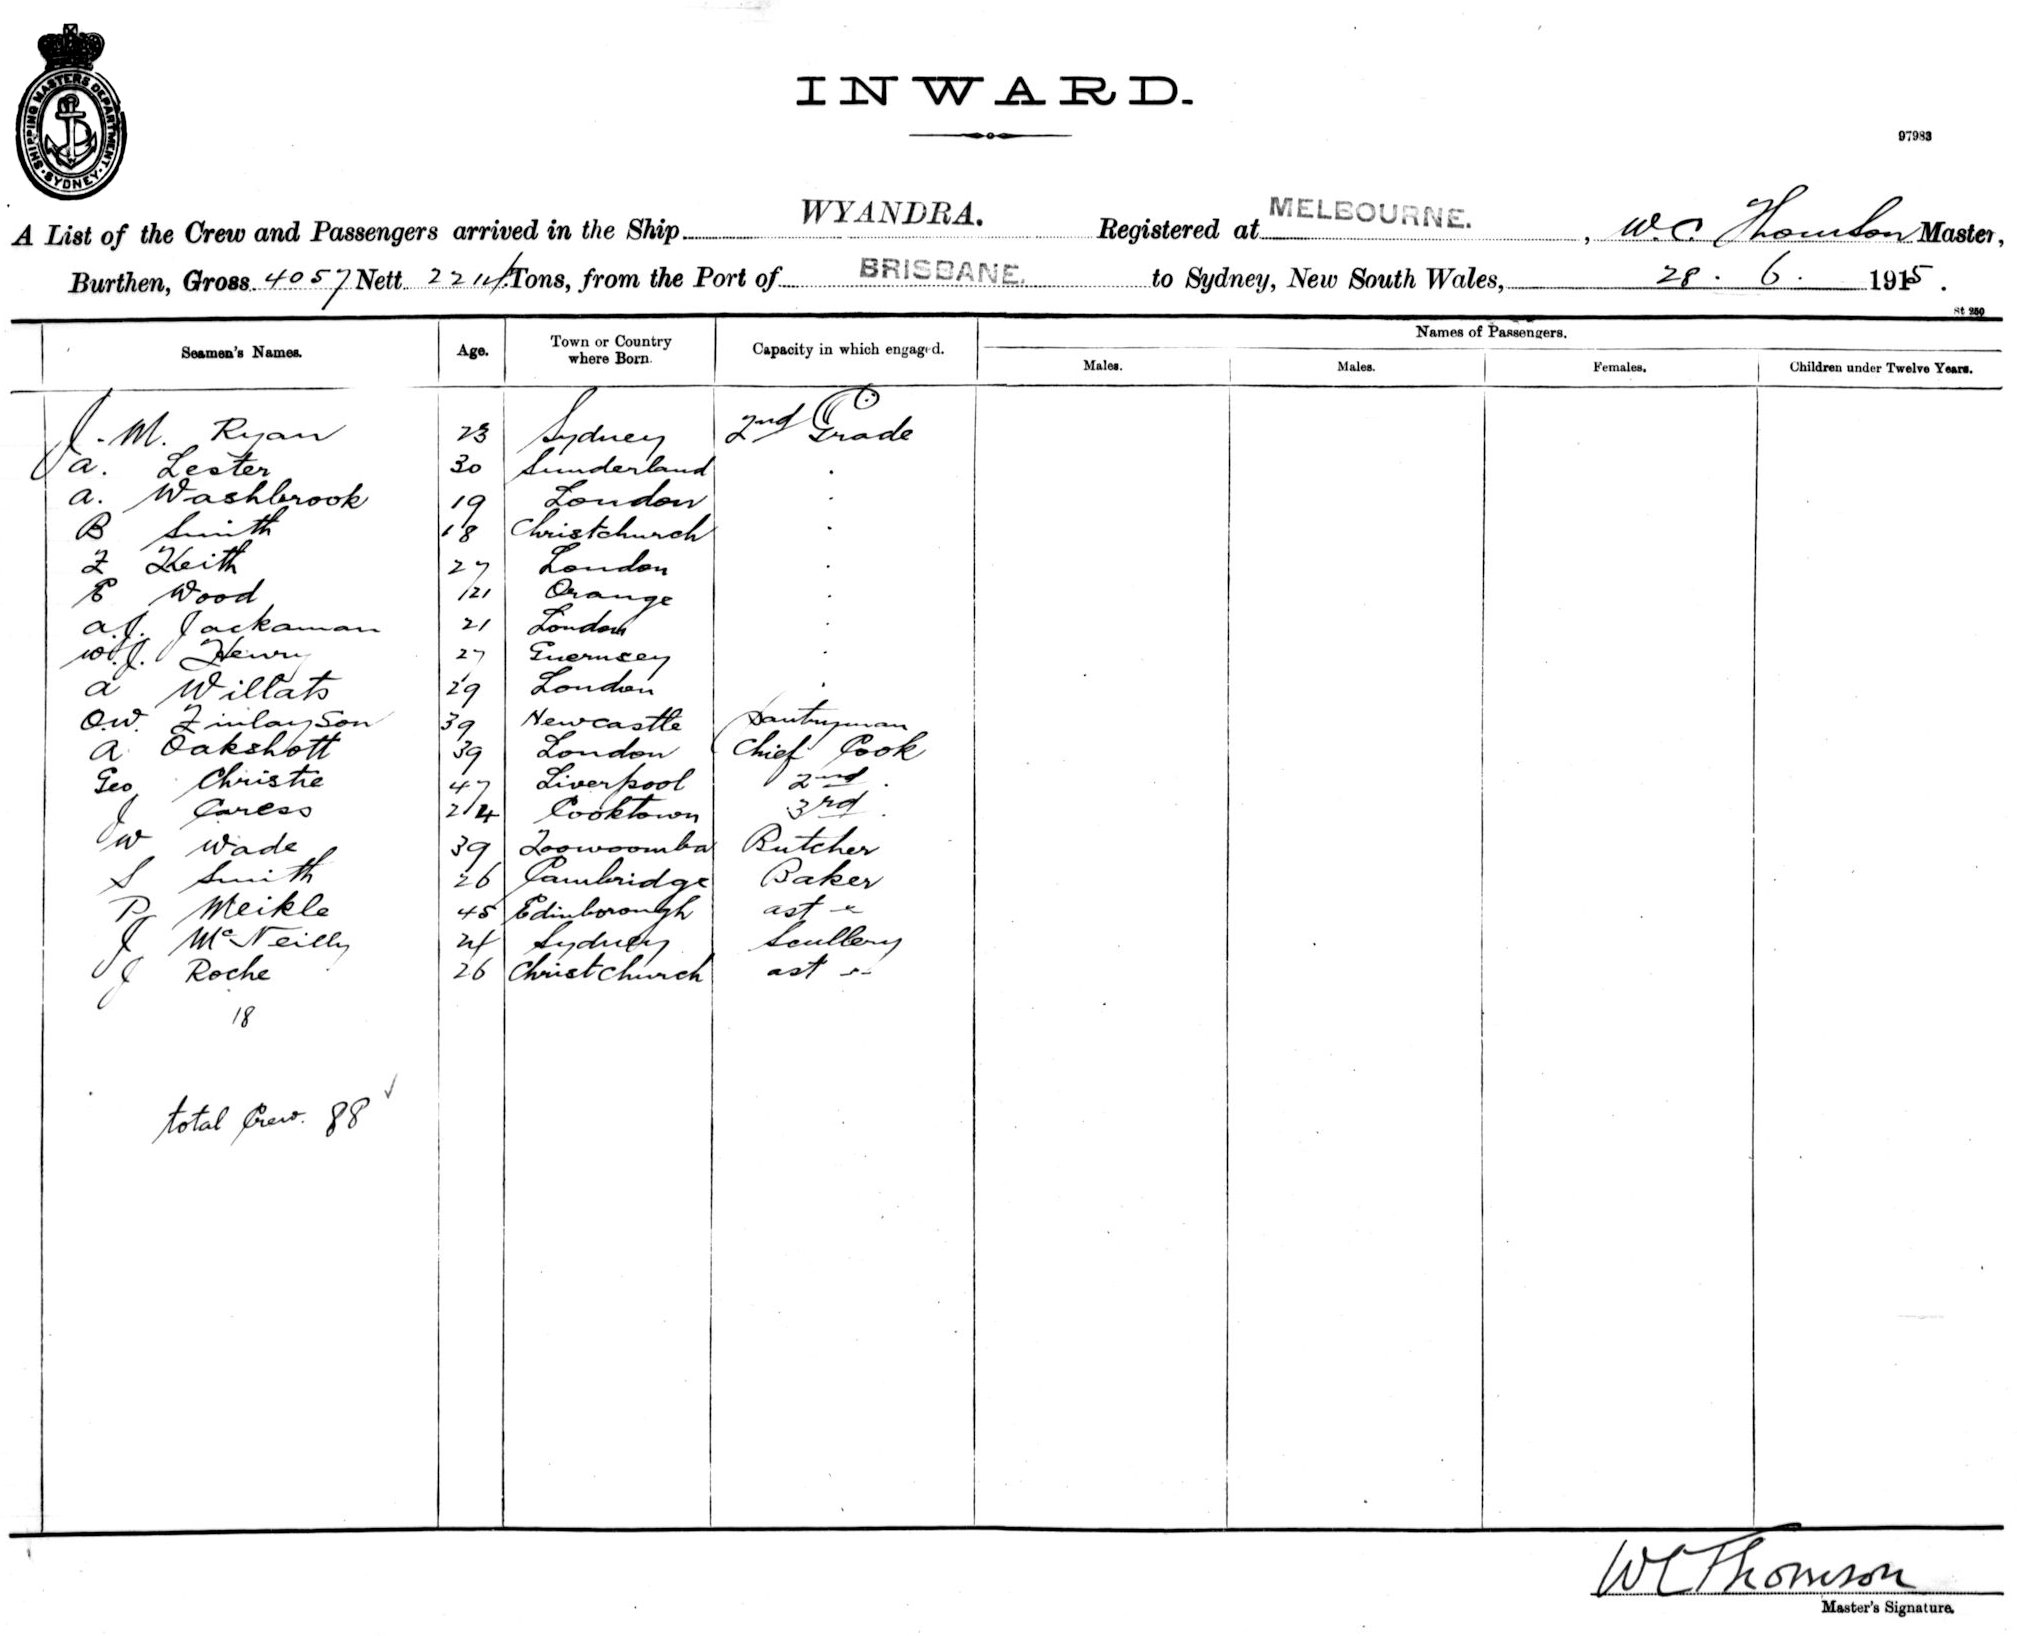 SHIPPING MASTERS DEPARTMENT. SYDNEY.
INWARD.
97983
A List of the Crew and Passengers arrived in the Ship WYANDRA. Registered at MELBOURNE. , W.C. Thomson Master,
Burthen, Gross 4057 Nett 2214 Tons, from the Port of BRISBANE. to Sydney, New South Wales, 28. 6. 1915.
St 250
Seamen's Names. Age. Town or Country where Born. Capacity in which engaged. Names of Passengers.
Males. Males. Females. Children under Twelve Years.
J. M. Ryan 23 Sydney 2nd Grade
A. Lester 30 Sunderland .
A. Washbrook 19 London .
B Smith 18 Christchurch .
F Keith 27 London .
E Wood 21 Orange .
A.J. Jackaman 21 London .
W.J. Henry 27 Guernsey .
A Willats 29 London .
O.W. Finlayson 39 Newcastle Pantryman
A Oakshott 39 London Chief Cook
Geo Christie 47 Liverpool 2nd .
J Caress 24 Cooktown 3rd .
W Wade 39 Toowoomba Butcher
S Smith 26 Cambridge Baker
P Meikle 45 Edinborough ast "
J McNeilly 24 Sydney Scullery
J Roche 26 Christchurch ast "
18
total Crew. 88 ✓
WC Thomson
Master's Signature.